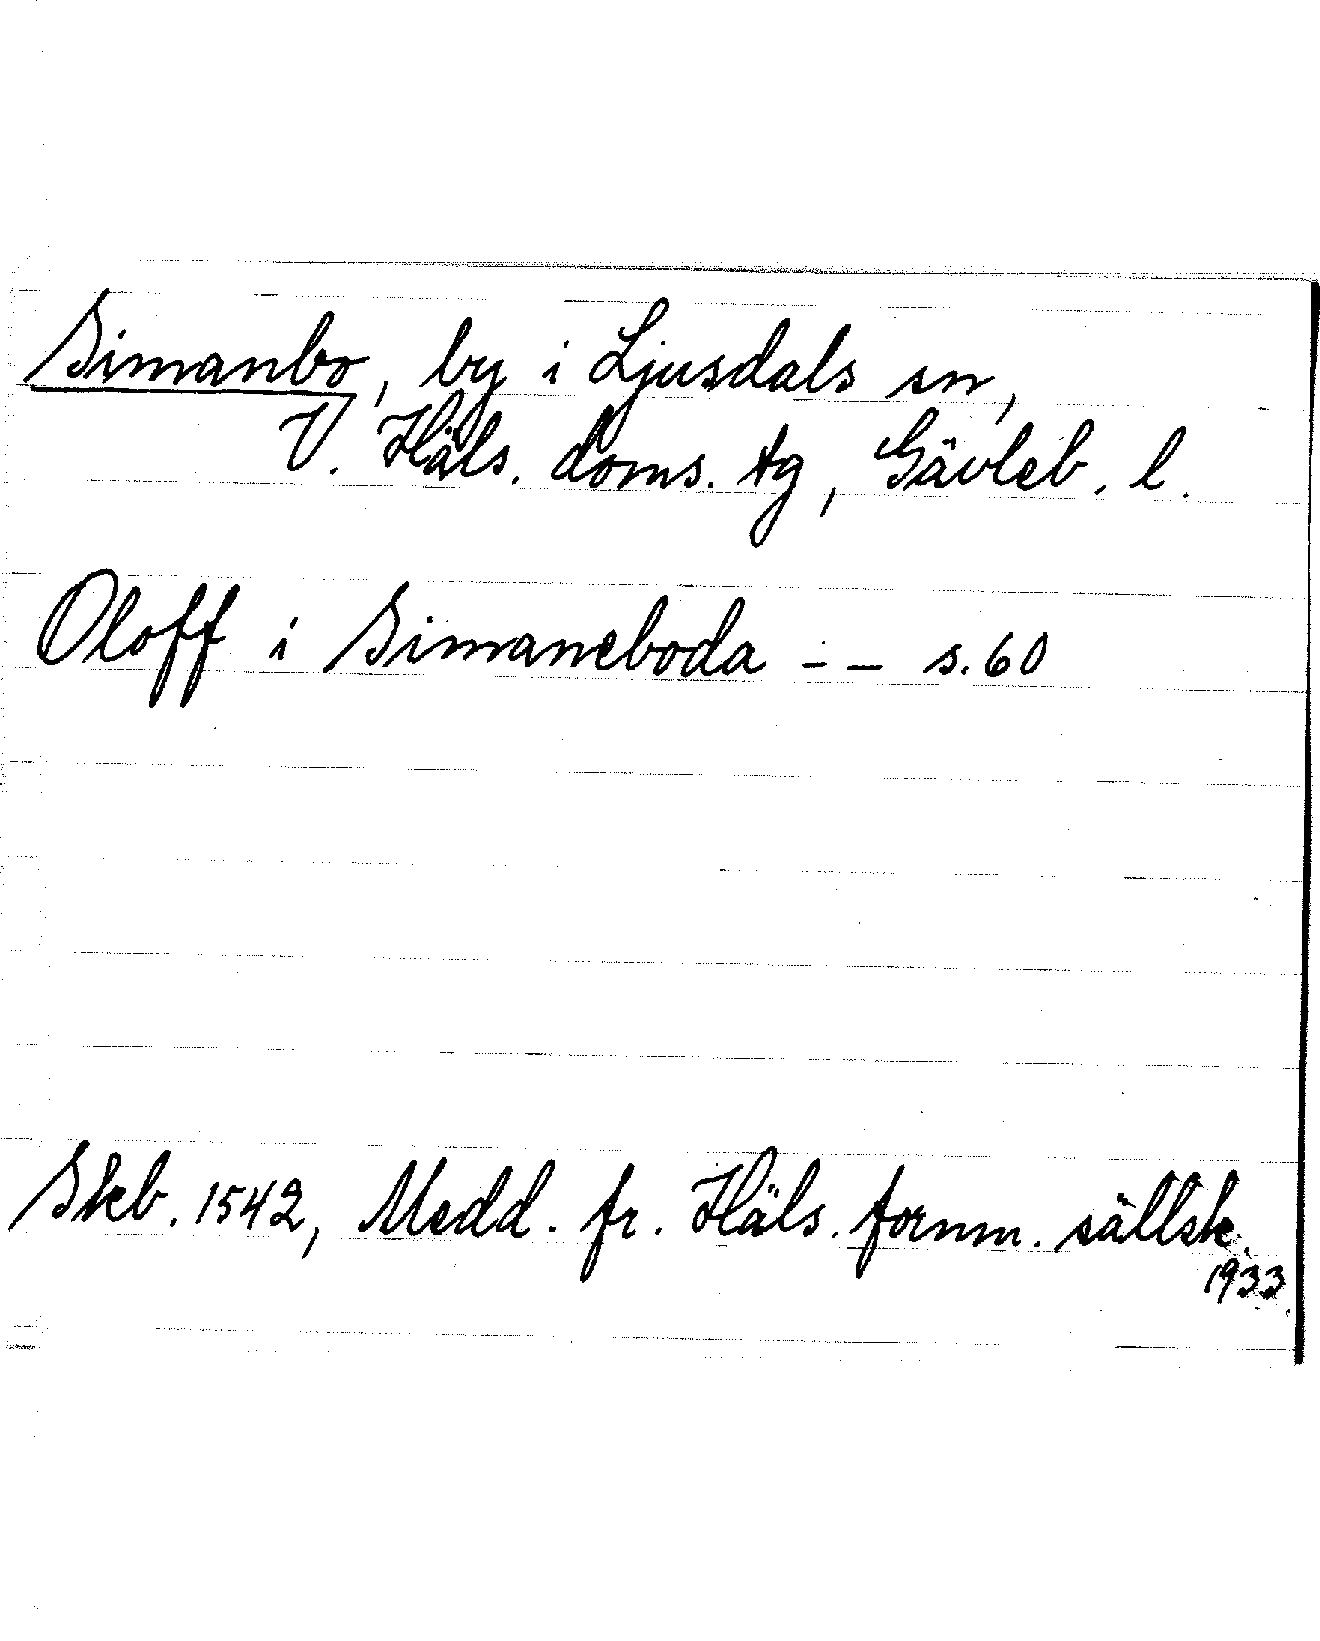 Simanbo, by i Ljusdals sn,
V. Häls. doms. tg, Gävleb. l.
Oloff i Simaneboda - - s. 60
Skb. 1542, Medd. fr. Häls. fornm. sällsk.
1933